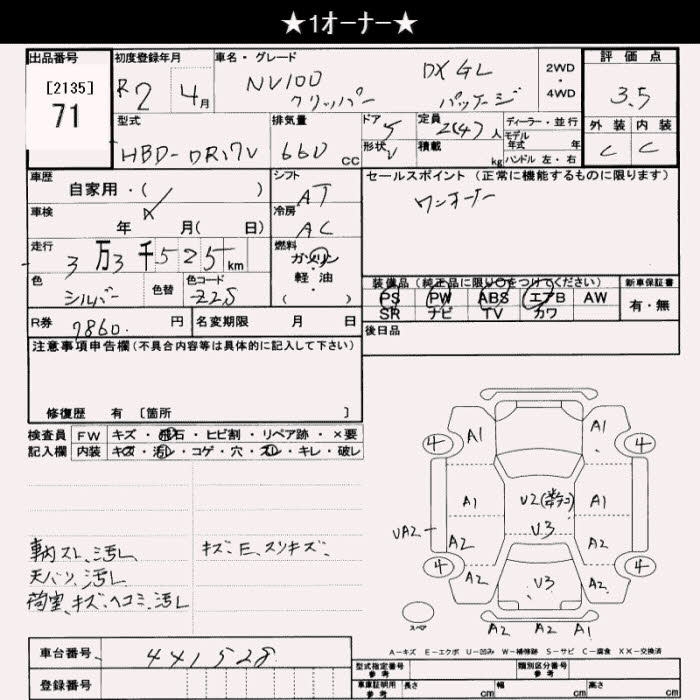 ★1オーナー★
出品番号 初度登録年月 車名・グレード 2WD・4WD 評価点
[2135]
71
R2 4月 NV100 クリッパー DX GL パッケージ 3.5
型式 排気量 ドア 5 定員 2(4)人 ディーラー・並行 外装 内装
HBD-DR17V 660cc 形状 V 積載 kg モデル年式 年 ハンドル 左・右 C C
車歴 自家用・( ) シフト AT セールスポイント(正常に機能するものに限ります)
車検 年 月( 日) 冷房 AC ワンオーナー
走行 3万3千525km 燃料 ガソリン・軽油 ( )
装備品(純正品に限り○をつけてください) 新車保証書
色 シルバー 色替 色コード Z2S
PS PW ABS エアB AW 有・無
SR ナビ TV カワ
R券 7860. 円 名変期限 月 日 後日品
注意事項申告欄(不具合内容等は具体的に記入して下さい)
修復歴 有 [箇所 ]
検査員 FW キズ・飛石・ヒビ割・リペア跡・×要
記入欄 内装 キズ・汚レ・コゲ・穴・スレ・キレ・破レ
車内スレ、汚レ キズ、E、スリキズ、
天バリ、汚レ
荷室、キズ、ヘコミ、汚レ
4 A1 A1 4
A1 U2 A1
UA2 A2 U3 A2
4 A2 U3 A2 4
スペア A2 A2 A1
A-キズ E-エクボ U-凹み W-補修跡 S-サビ C-腐食 XX-交換済
車台番号 441528
登録番号
型式指定番号 参考 類別区分番号 参考
車庫証明用 参考 長さ cm 幅 cm 高さ cm